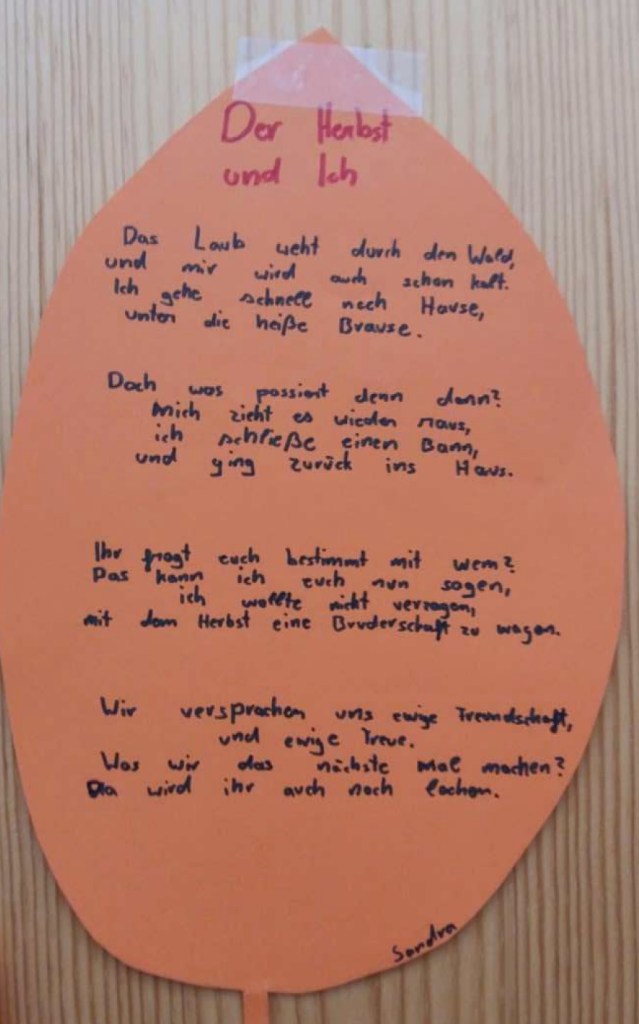 Der Herbst
und Ich
Das Laub weht durch den Wald,
und mir wird auch schon kalt.
Ich gehe schnell nach Hause,
unter die heiße Brause.
Doch was passiert denn dann?
Mich zieht es wieder raus,
ich schließe einen Bann,
und ging zurück ins Haus.
Ihr fragt euch bestimmt mit wem?
Das kann ich euch nun sagen,
ich wollte nicht verzagen,
mit dem Herbst eine Bruderschaft zu wagen.
Wir versprachen uns ewige Freundschaft,
und ewige Treue.
Was wir das nächste mal machen?
Da wird ihr auch noch lachen.
Sandra